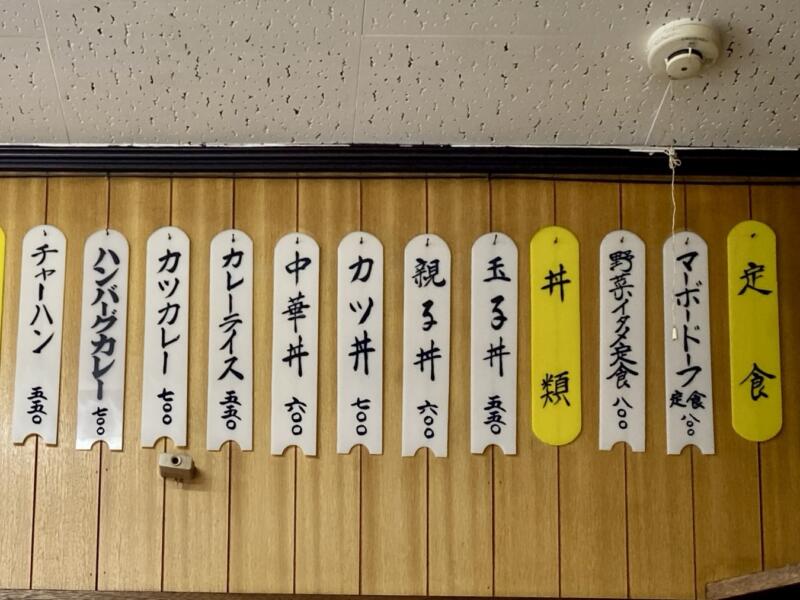 定食
マーボードーフ
定食 八〇〇
野菜イタメ定食 八〇〇
丼類
玉子丼 五五〇
親子丼 六〇〇
カツ丼 七〇〇
中華丼 六〇〇
カレーライス 五五〇
カツカレー 七〇〇
ハンバーグカレー 七〇〇
チャーハン 五五〇